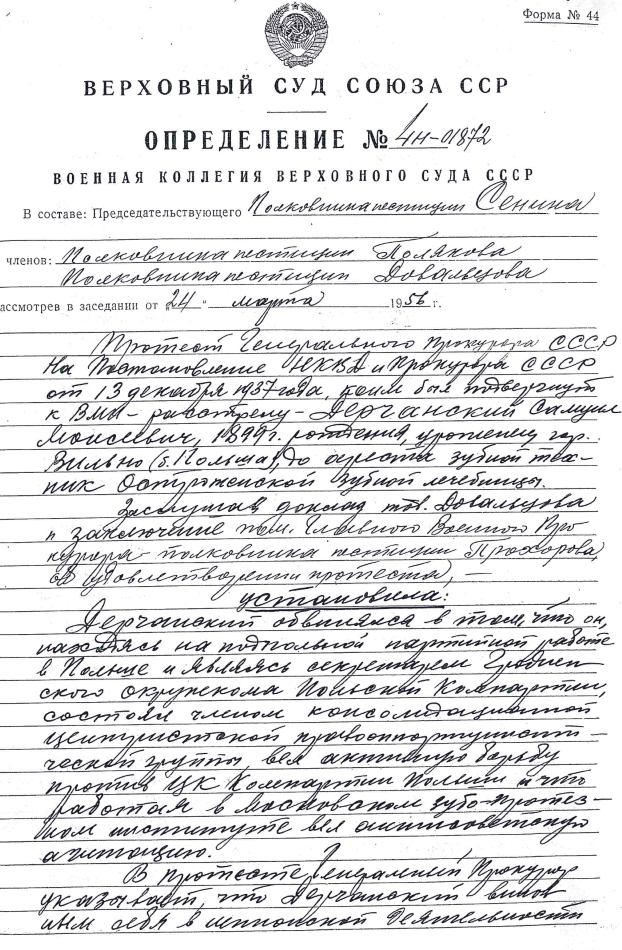 Форма № 44
ВЕРХОВНЫЙ СУД СОЮЗА ССР
ОПРЕДЕЛЕНИЕ № 4Н-01872
ВОЕННАЯ КОЛЛЕГИЯ ВЕРХОВНОГО СУДА СССР
В составе: Председательствующего Полковника юстиции Сенина
членов: Полковника юстиции Полякова
Полковника юстиции Довальцова
ассмотрев в заседании от "24" марта 1956 г.
Протест Генерального Прокурора СССР
На Постановление НКВД и Прокурора СССР
от 13 декабря 1937 года, коим был подвергнут
к ВМН - расстрелу - Дерчанский Самуил
Моисеевич, 1899 г. рождения, уроженец гор.
Вильно (б. Польша), до ареста зубной тех-
ник зубной лечебницы.
Заслушав доклад тов. Довальцова
и заключение пом. Главного Военного Про-
курора полковника юстиции Прохорова,
об удовлетворении протеста, —
установила:
Дерчанский обвинялся в том, что он,
находясь на подпольной партийной работе
в Польше и являясь секретарем Гроднен
ского окружкома Польской Компартии,
состоял членом консолидационной
центристской правооппортунисти-
ческой группы, вел активную борьбу
против ЦК Компартии Польши и что
работая в Московском зубо-протез-
ном институте вел антисоветскую
агитацию.
В протесте Генеральный Прокурор
указывает, что Дерчанский винов
ным себя в шпионской деятельности